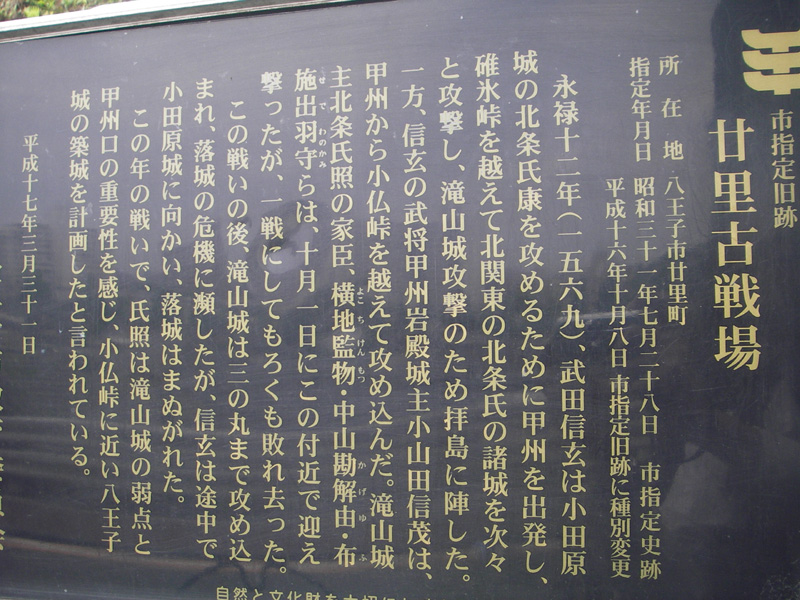 市指定旧跡
廿里古戦場
所在地 八王子市廿里町
指定年月日 昭和三十一年七月二十八日 市指定史跡
平成十六年十月八日 市指定旧跡に種別変更
永禄十二年(一五六九)、武田信玄は小田原
城の北条氏康を攻めるために甲州を出発し、
碓氷峠を越えて北関東の北条氏の諸城を次々
と攻撃し、滝山城攻撃のため拝島に陣した。
一方、信玄の武将甲州岩殿城主小山田信茂は、
甲州から小仏峠を越えて攻め込んだ。滝山城
主北条氏照の家臣、横地監物・中山勘解由・布
施出羽守らは、十月一日にこの付近で迎え
撃ったが、一戦にしてもろくも敗れ去った。
この戦いの後、滝山城は三の丸まで攻め込
まれ、落城の危機に瀕したが、信玄は途中で
小田原城に向かい、落城はまぬがれた。
この年の戦いで、氏照は滝山城の弱点と
甲州口の重要性を感じ、小仏峠に近い八王子
城の築城を計画したと言われている。
平成十七年三月三十一日